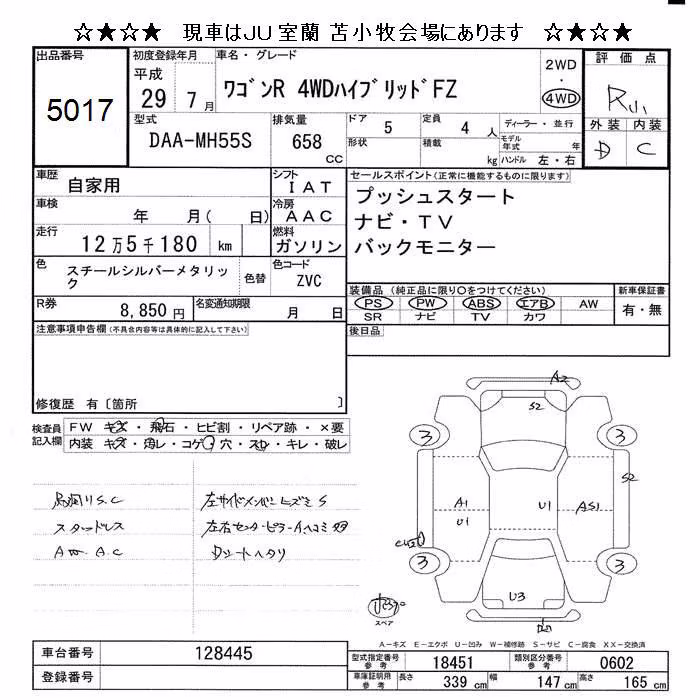 ☆★☆★ 現車はJU室蘭 苫小牧会場にあります ☆★☆★
出品番号
5017
初度登録年月
平成
29 7 月
車名・グレード
ワゴンR 4WDハイブリッドFZ
2WD
・
4WD
評価点
外装 内装
D C
型式
DAA-MH55S
排気量
658
CC
ドア
5
定員
4 人
形状
積載
kg
ディーラー・並行
モデル
年式
年
ハンドル 左・右
車歴
自家用
シフト
IAT
車検
年 月( 日)
冷房
AAC
走行
12万5千180 km
燃料
ガソリン
色
スチールシルバーメタリッ
ク
色替
色コード
ZVC
R券
8,850 円
名変通知期限
月 日
セールスポイント(正常に機能するものに限ります)
プッシュスタート
ナビ・TV
バックモニター
装備品 (純正品に限り○をつけてください)
PS PW ABS エアB AW
SR ナビ TV カワ
新車保証書
有・無
後日品
注意事項申告欄(不具合内容等は具体的に記入して下さい)
修復歴 有〔箇所 〕
検査員
記入欄
FW キズ・飛石・ヒビ割・リペア跡・×要
内装 キズ・汚レ・コゲ・穴・スレ・キレ・破レ
スタートレス
A2
S2
3 3
S2
A1
U1
U1
AS1
3 3
U3
スペア
A-キズ E-エクボ U-凹み W-補修跡 S-サビ C-腐食 XX-交換済
車台番号
128445
登録番号
型式指定番号
参考
18451
類別区分番号
参考
0602
車庫証明用
参考
長さ
339 cm
幅
147 cm
高さ
165 cm